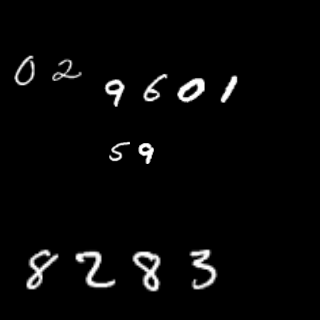 02
9601
59
8283